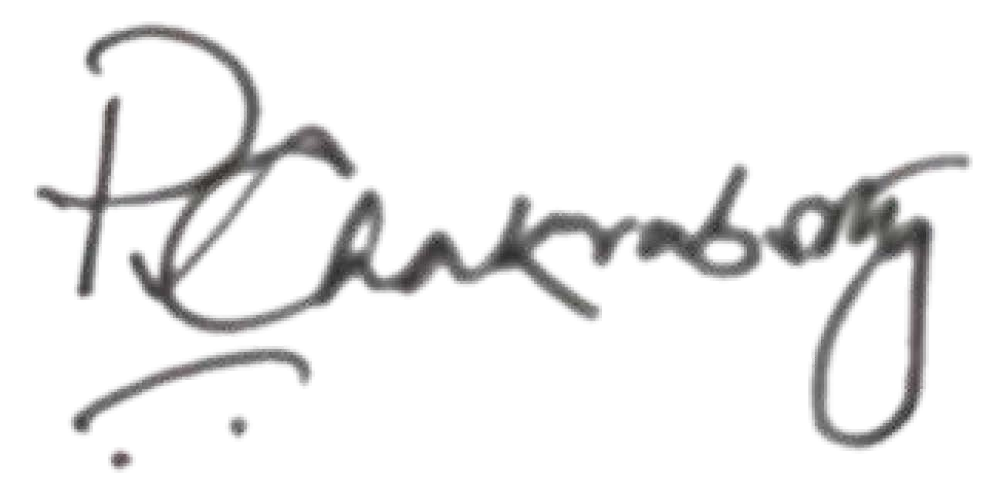 P Chakraborty